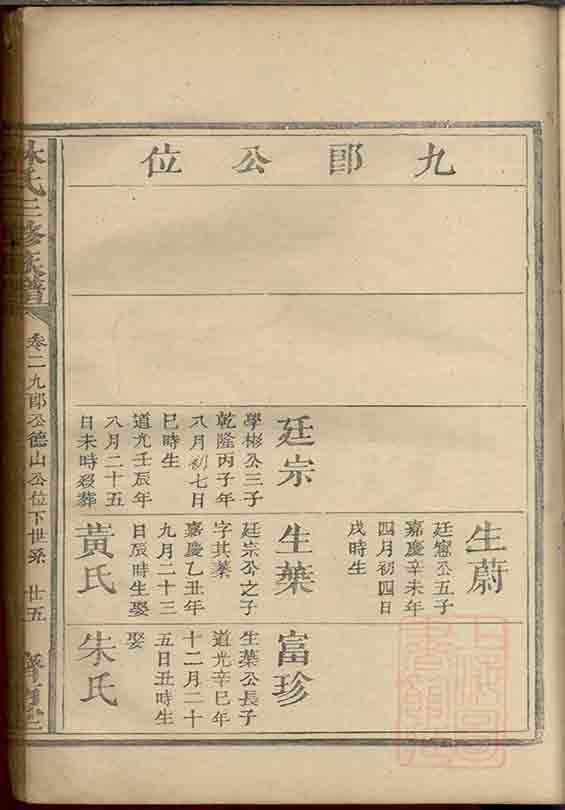 九郎公位
廷宗
學彬公三子
乾隆丙子年
八月初七日
巳時生
道光壬辰年
八月二十五
日未時殁葬
生蔚
廷憲公五子
嘉慶辛未年
四月初四日
戌時生
生葉
廷宗公之子
字其蓁
嘉慶乙丑年
九月二十三
日辰時生娶
黃氏
富珍
生葉公長子
道光辛巳年
十二月二十
五日丑時生
娶
朱氏
林氏三修族譜
卷二九郎公德山公位下世系
廿五